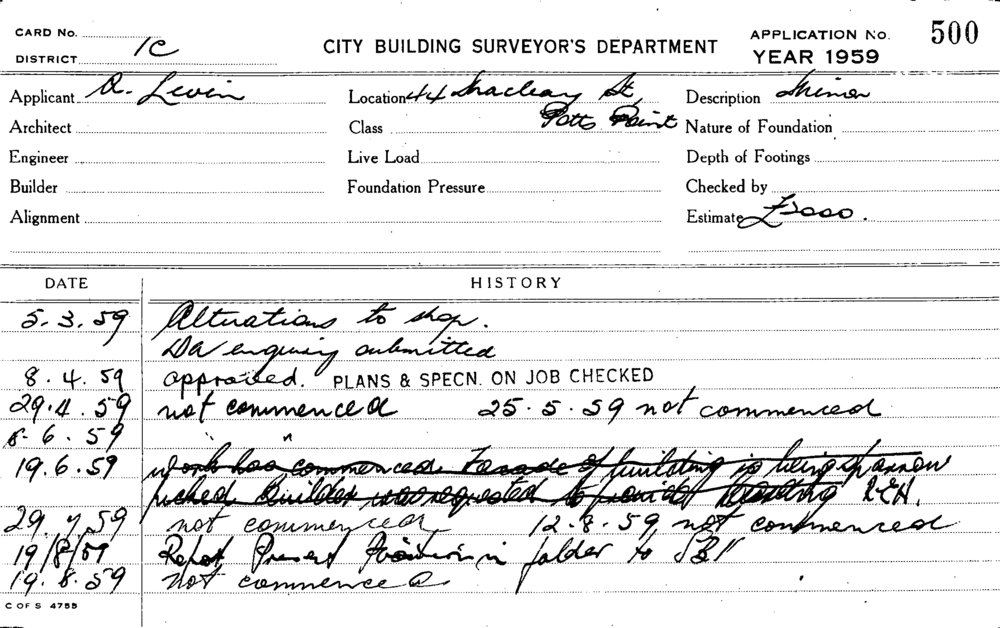 CARD No.
DISTRICT 1C
CITY BUILDING SURVEYOR'S DEPARTMENT
APPLICATION No. 500
YEAR 1959
Applicant A. Levin
Location 44 Macleay St, Potts Point
Description Minor
Architect
Class
Nature of Foundation
Engineer
Live Load
Depth of Footings
Builder
Foundation Pressure
Checked by
Alignment
Estimate £3000.
DATE HISTORY
5.3.59 Alterations to shop.
Da enquiry submitted
8.4.59 approved. PLANS & SPECN. ON JOB CHECKED
29.4.59 not commenced 25.5.59 not commenced
8.6.59 " "
19.6.59 work has commenced. Facade of building is being sparrow
picked builder was requested to provide hoarding
29.7.59 not commenced, 12.8.59 not commenced
19/8/59 Report Present Position in folder to
19.8.59 not commenced
C OF S 4755